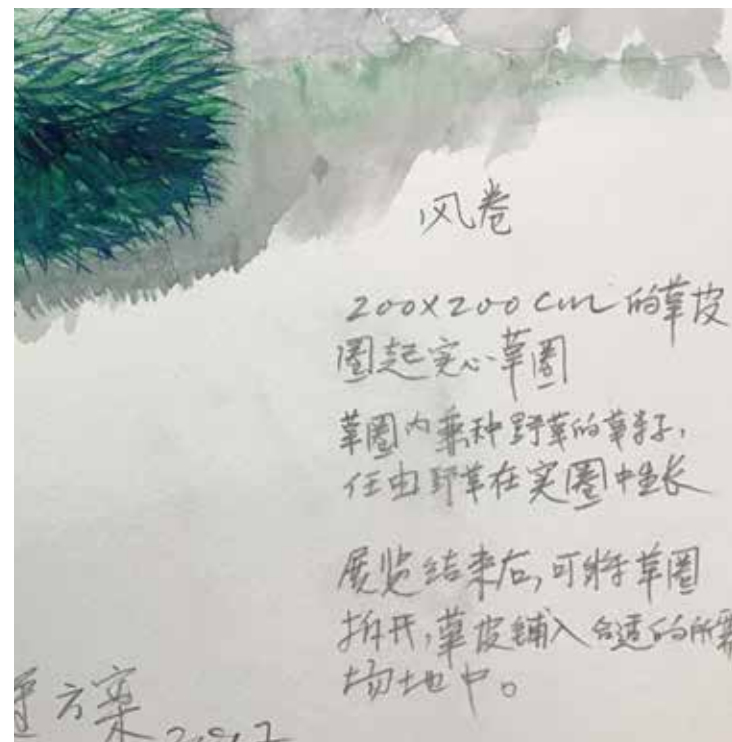 风卷
200x200 cm 的草皮
圈起实心草圈
草圈内种野草的草籽,
任由野草在实圈中生长
展览结束后,可将草圈
拆开,草皮铺入合适的所需
场地中。
方案